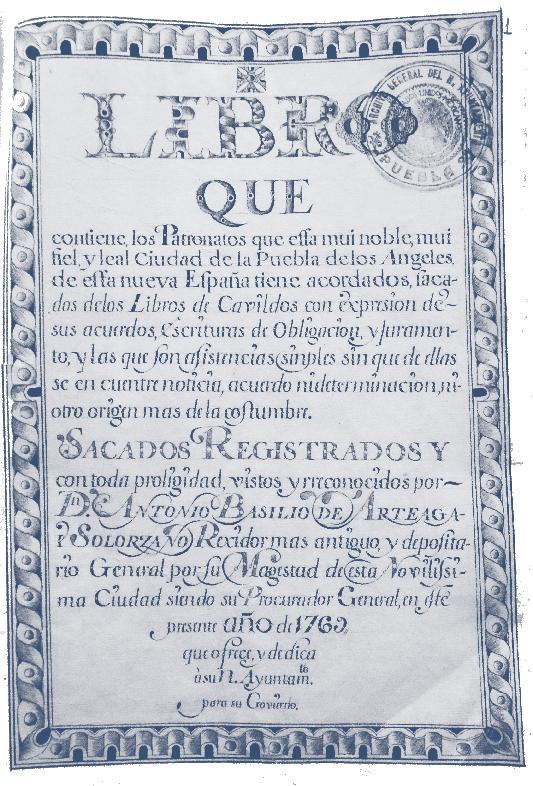 1
LIBRO
QUE
contiene, los Patronatos que essa mui noble, mui
fiel, y leal Ciudad de la Puebla delos Angeles,
de essa nueva España tiene acordados, saca-
dos delos Libros de Cavildos con expresion de-
sus acuerdos, Escrituras de Obligacion, y Juramen-
to, y las que son asistencias simples sin que de ellas
se en cuentre noticia, acuerdo ni determinacion, ni-
otro origen mas de la costumbre.
SACADOS REGISTRADOS Y
con toda proligidad, vistos y rreconocidos por-
Dn. ANTONIO BASILIO DE ARTEAGA-
i SOLORZANO Rexidor mas antiguo, y deposita-
rio General por su Magestad de esta Novilisi-
ma Ciudad siendo su Procurador General, en este
presente año de 1769,
que ofrece, y de dica
à su N. Ayuntamto.
para su Govierno.
ARCHIVO GENERAL DEL H. AYUNTAMIENTO
PUEBLA